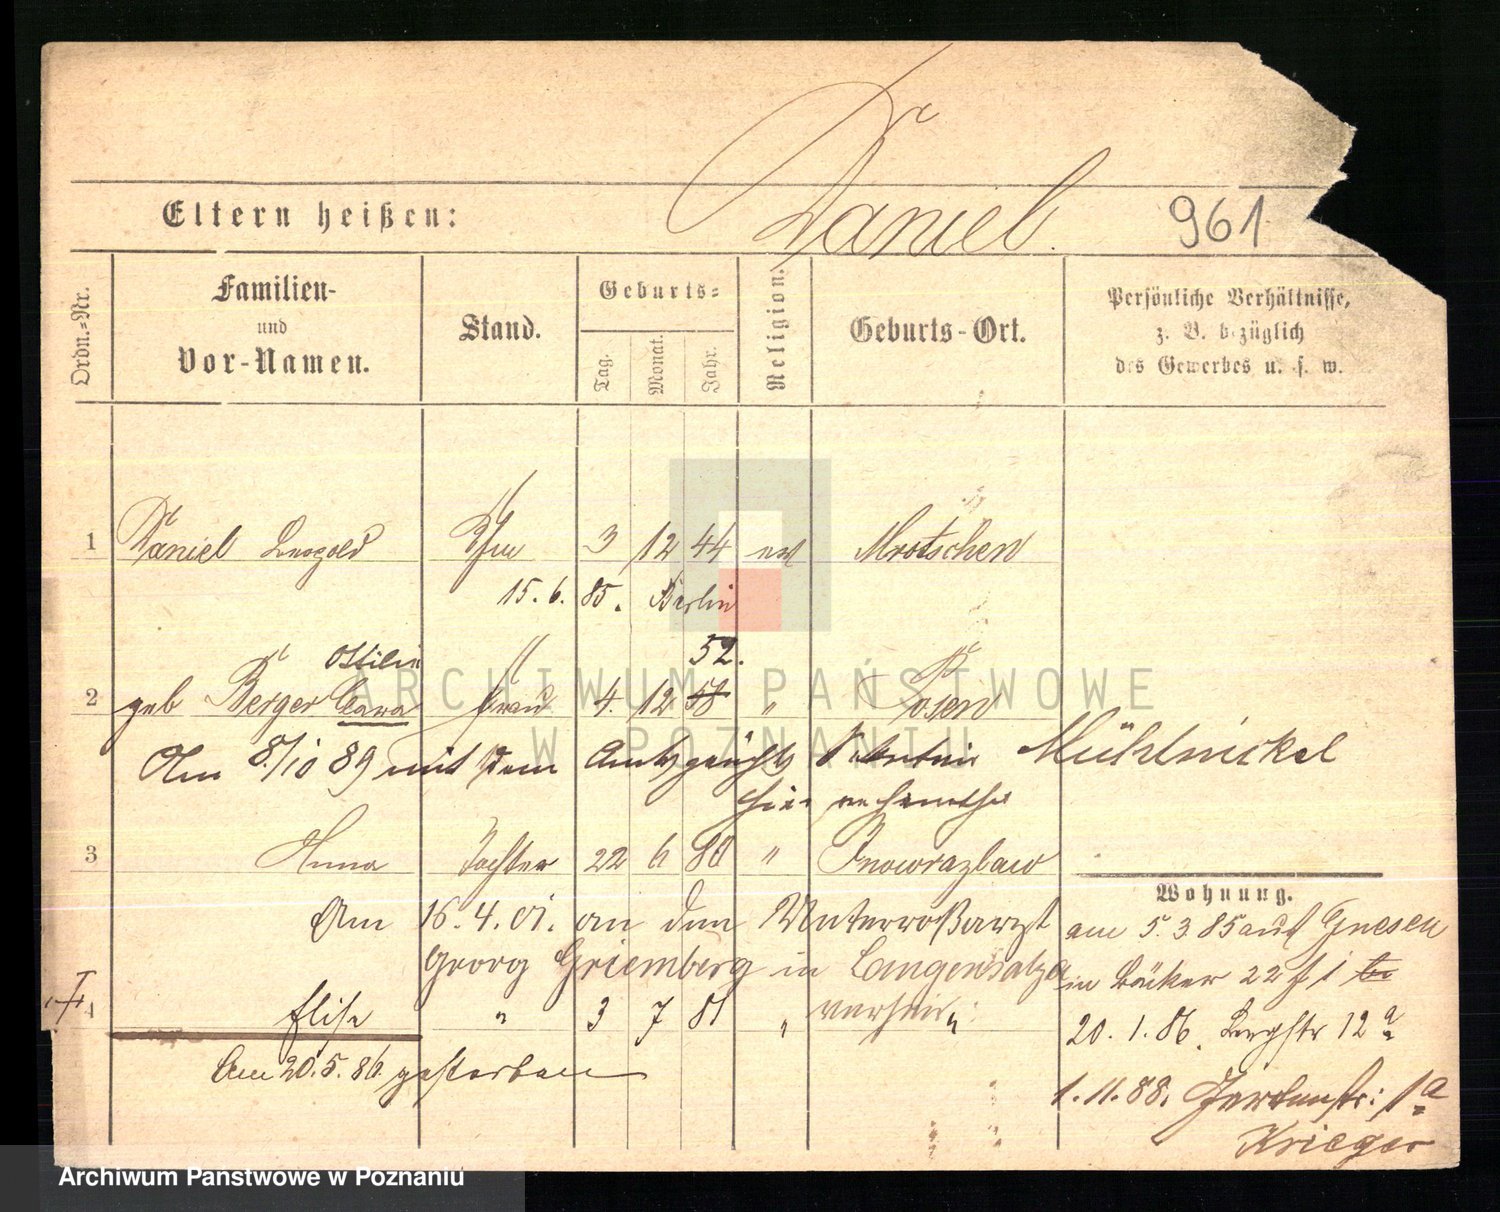 Eltern heißen:
Daniel.
961
Ordn.-Nr.
Familien-
und
Vor-Namen.
Stand.
Geburts-
Tag.
Monat.
Jahr.
Religion.
Geburts-Ort.
Persönliche Verhältnisse,
z. B. bezüglich
des Gewerbes u. s. w.
1 Daniel Leopold 3 12 44 ev Mrotschen
15. 6. 85. Berlin
Ottilie 52.
2 geb Berger Clara Frau 4. 12 58 " Posen
Am 8/10 89 mit dem Mühlnickel
hier
3 Anna Tochter 22 6 80 " Inowrazlaw
Am 16. 4. 01. an den Unterroßarzt
Georg Griemberg in Langensalza
verheir.
4 Elise " 3 7 81 " "
Am 20. 5. 86. gestorben
Wohnung.
am 5. 3. 85 aus Gnesen
in Bäcker 22
20. 1. 86. Bergstr 12a
1. 11. 88. Gartenstr: 1a
Krieger
ARCHIWUM PAŃSTWOWE
W POZNANIU
Archiwum Państwowe w Poznaniu